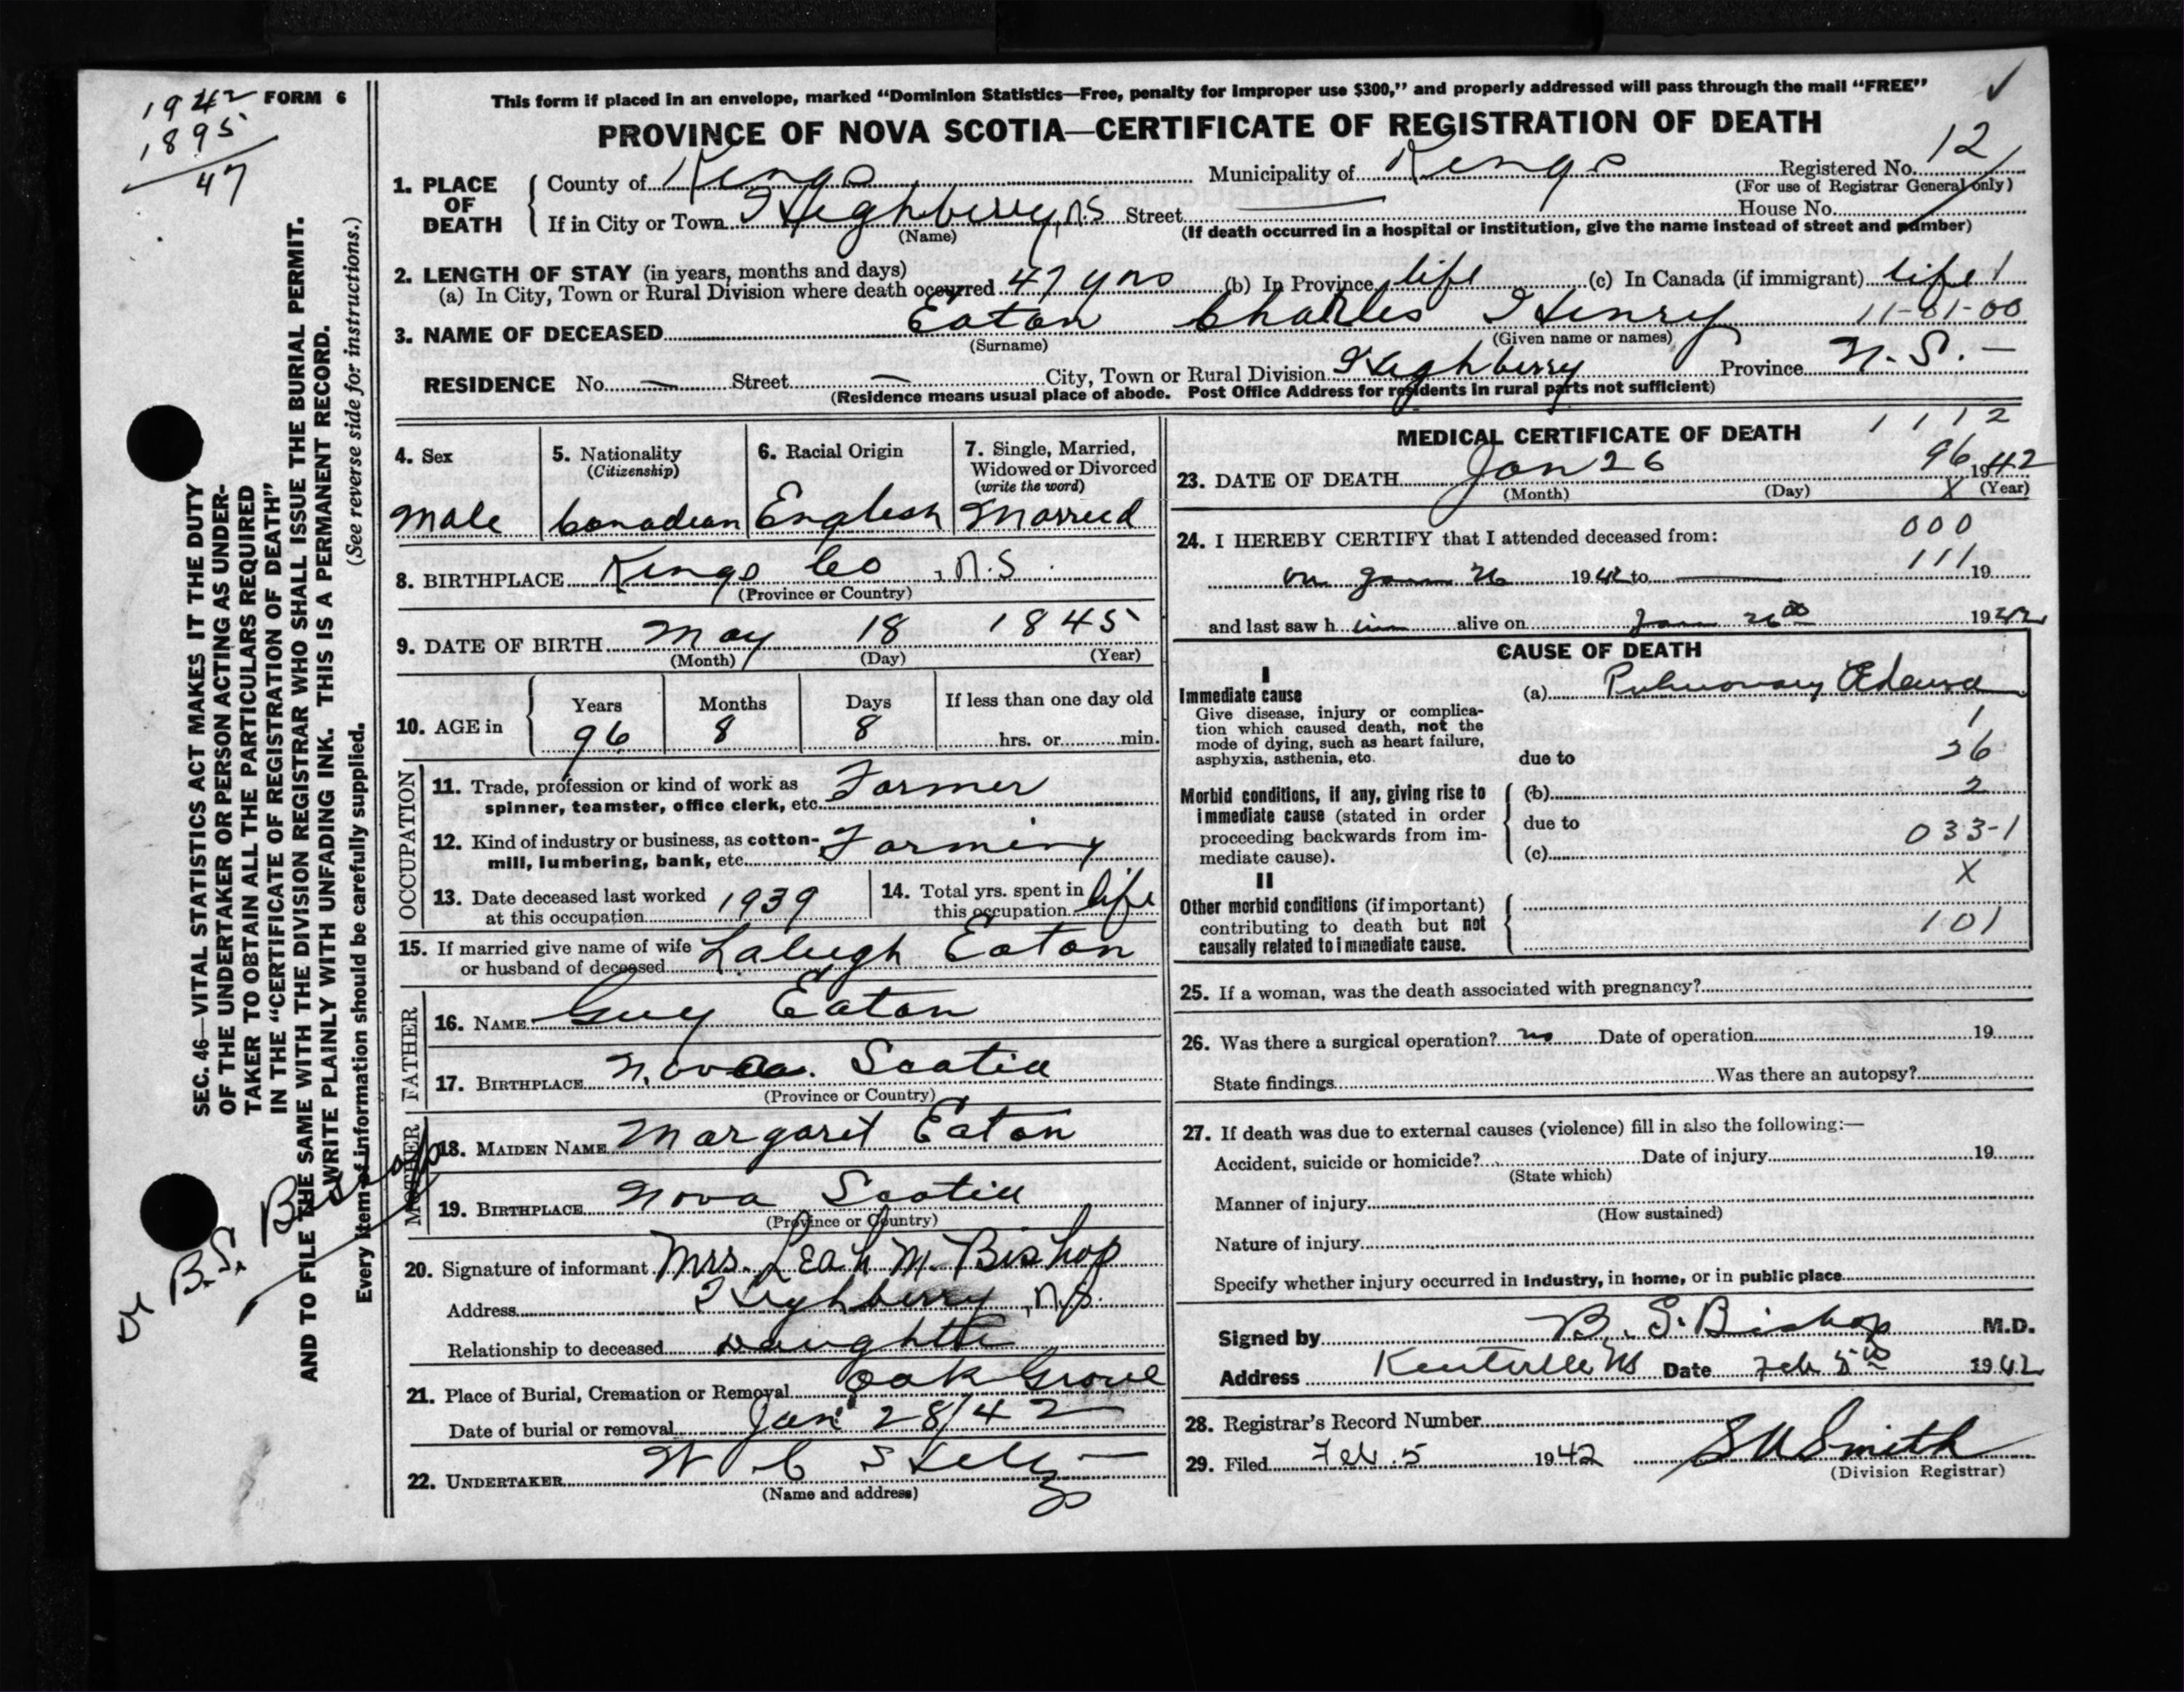 1942
1895
47
FORM 6
This form if placed in an envelope, marked "Dominion Statistics—Free, penalty for improper use $300," and properly addressed will pass through the mail "FREE"
PROVINCE OF NOVA SCOTIA—CERTIFICATE OF REGISTRATION OF DEATH
1. PLACE OF DEATH County of Kings Municipality of Kings Registered No. 12
(For use of Registrar General only)
If in City or Town Highberry, N.S Street — House No.
(Name) (If death occurred in a hospital or institution, give the name instead of street and number)
2. LENGTH OF STAY (in years, months and days)
(a) In City, Town or Rural Division where death occurred 47 yrs (b) In Province life (c) In Canada (if immigrant) life 1
3. NAME OF DECEASED Eaton Charles Henry 11-81-00
(Surname) (Given name or names)
RESIDENCE No. — Street — City, Town or Rural Division Highberry Province N.S. —
(Residence means usual place of abode. Post Office Address for residents in rural parts not sufficient)
4. Sex
Male
5. Nationality
(Citizenship)
Canadian
6. Racial Origin
English
7. Single, Married,
Widowed or Divorced
(write the word)
Married
8. BIRTHPLACE Kings Co, N.S.
(Province or Country)
9. DATE OF BIRTH May 18 1845
(Month) (Day) (Year)
10. AGE in Years Months Days If less than one day old
96 8 8 hrs. or min.
OCCUPATION
11. Trade, profession or kind of work as
spinner, teamster, office clerk, etc. Farmer
12. Kind of industry or business, as cotton-
mill, lumbering, bank, etc. Farming
13. Date deceased last worked
at this occupation 1939
14. Total yrs. spent in
this occupation life
15. If married give name of wife
or husband of deceased Laleigh Eaton
FATHER
16. NAME Guy Eaton
17. BIRTHPLACE Nova Scotia
(Province or Country)
MOTHER
18. MAIDEN NAME Margaret Eaton
19. BIRTHPLACE Nova Scotia
(Province or Country)
20. Signature of informant Mrs. Leah M. Bishop
Address Highberry, N.S.
Relationship to deceased Daughter
21. Place of Burial, Cremation or Removal Oak Grove
Date of burial or removal Jan 28/42
22. UNDERTAKER W C
(Name and address)
MEDICAL CERTIFICATE OF DEATH 1 1 1 2
23. DATE OF DEATH Jan 26 96 1942
(Month) (Day) X (Year)
24. I HEREBY CERTIFY that I attended deceased from: 000
on Jan 26 1942 to — 111 19
and last saw him alive on Jan 26 1942
CAUSE OF DEATH
I
Immediate cause (a) Pulmonary Edema
Give disease, injury or complica-
tion which caused death, not the
mode of dying, such as heart failure,
asphyxia, asthenia, etc.
1
due to 26
Morbid conditions, if any, giving rise to
immediate cause (stated in order
proceeding backwards from im-
mediate cause).
(b) 2
due to 033-1
(c)
X
II
Other morbid conditions (if important)
contributing to death but not
causally related to immediate cause.
101
25. If a woman, was the death associated with pregnancy?
26. Was there a surgical operation? no Date of operation 19
State findings Was there an autopsy?
27. If death was due to external causes (violence) fill in also the following:—
Accident, suicide or homicide? Date of injury 19
(State which)
Manner of injury
(How sustained)
Nature of injury
Specify whether injury occurred in industry, in home, or in public place
Signed by B. S. Bishop M.D.
Address Kentville NS Date Feb 5th 1942
28. Registrar's Record Number
29. Filed Feb. 5 1942 Smith
(Division Registrar)
SEC. 46—VITAL STATISTICS ACT MAKES IT THE DUTY
OF THE UNDERTAKER OR PERSON ACTING AS UNDER-
TAKER TO OBTAIN ALL THE PARTICULARS REQUIRED
IN THE "CERTIFICATE OF REGISTRATION OF DEATH"
AND TO FILE THE SAME WITH THE DIVISION REGISTRAR WHO SHALL ISSUE THE BURIAL PERMIT.
WRITE PLAINLY WITH UNFADING INK. THIS IS A PERMANENT RECORD.
Every item of information should be carefully supplied. (See reverse side for instructions.)
Dr B.S. Bishop